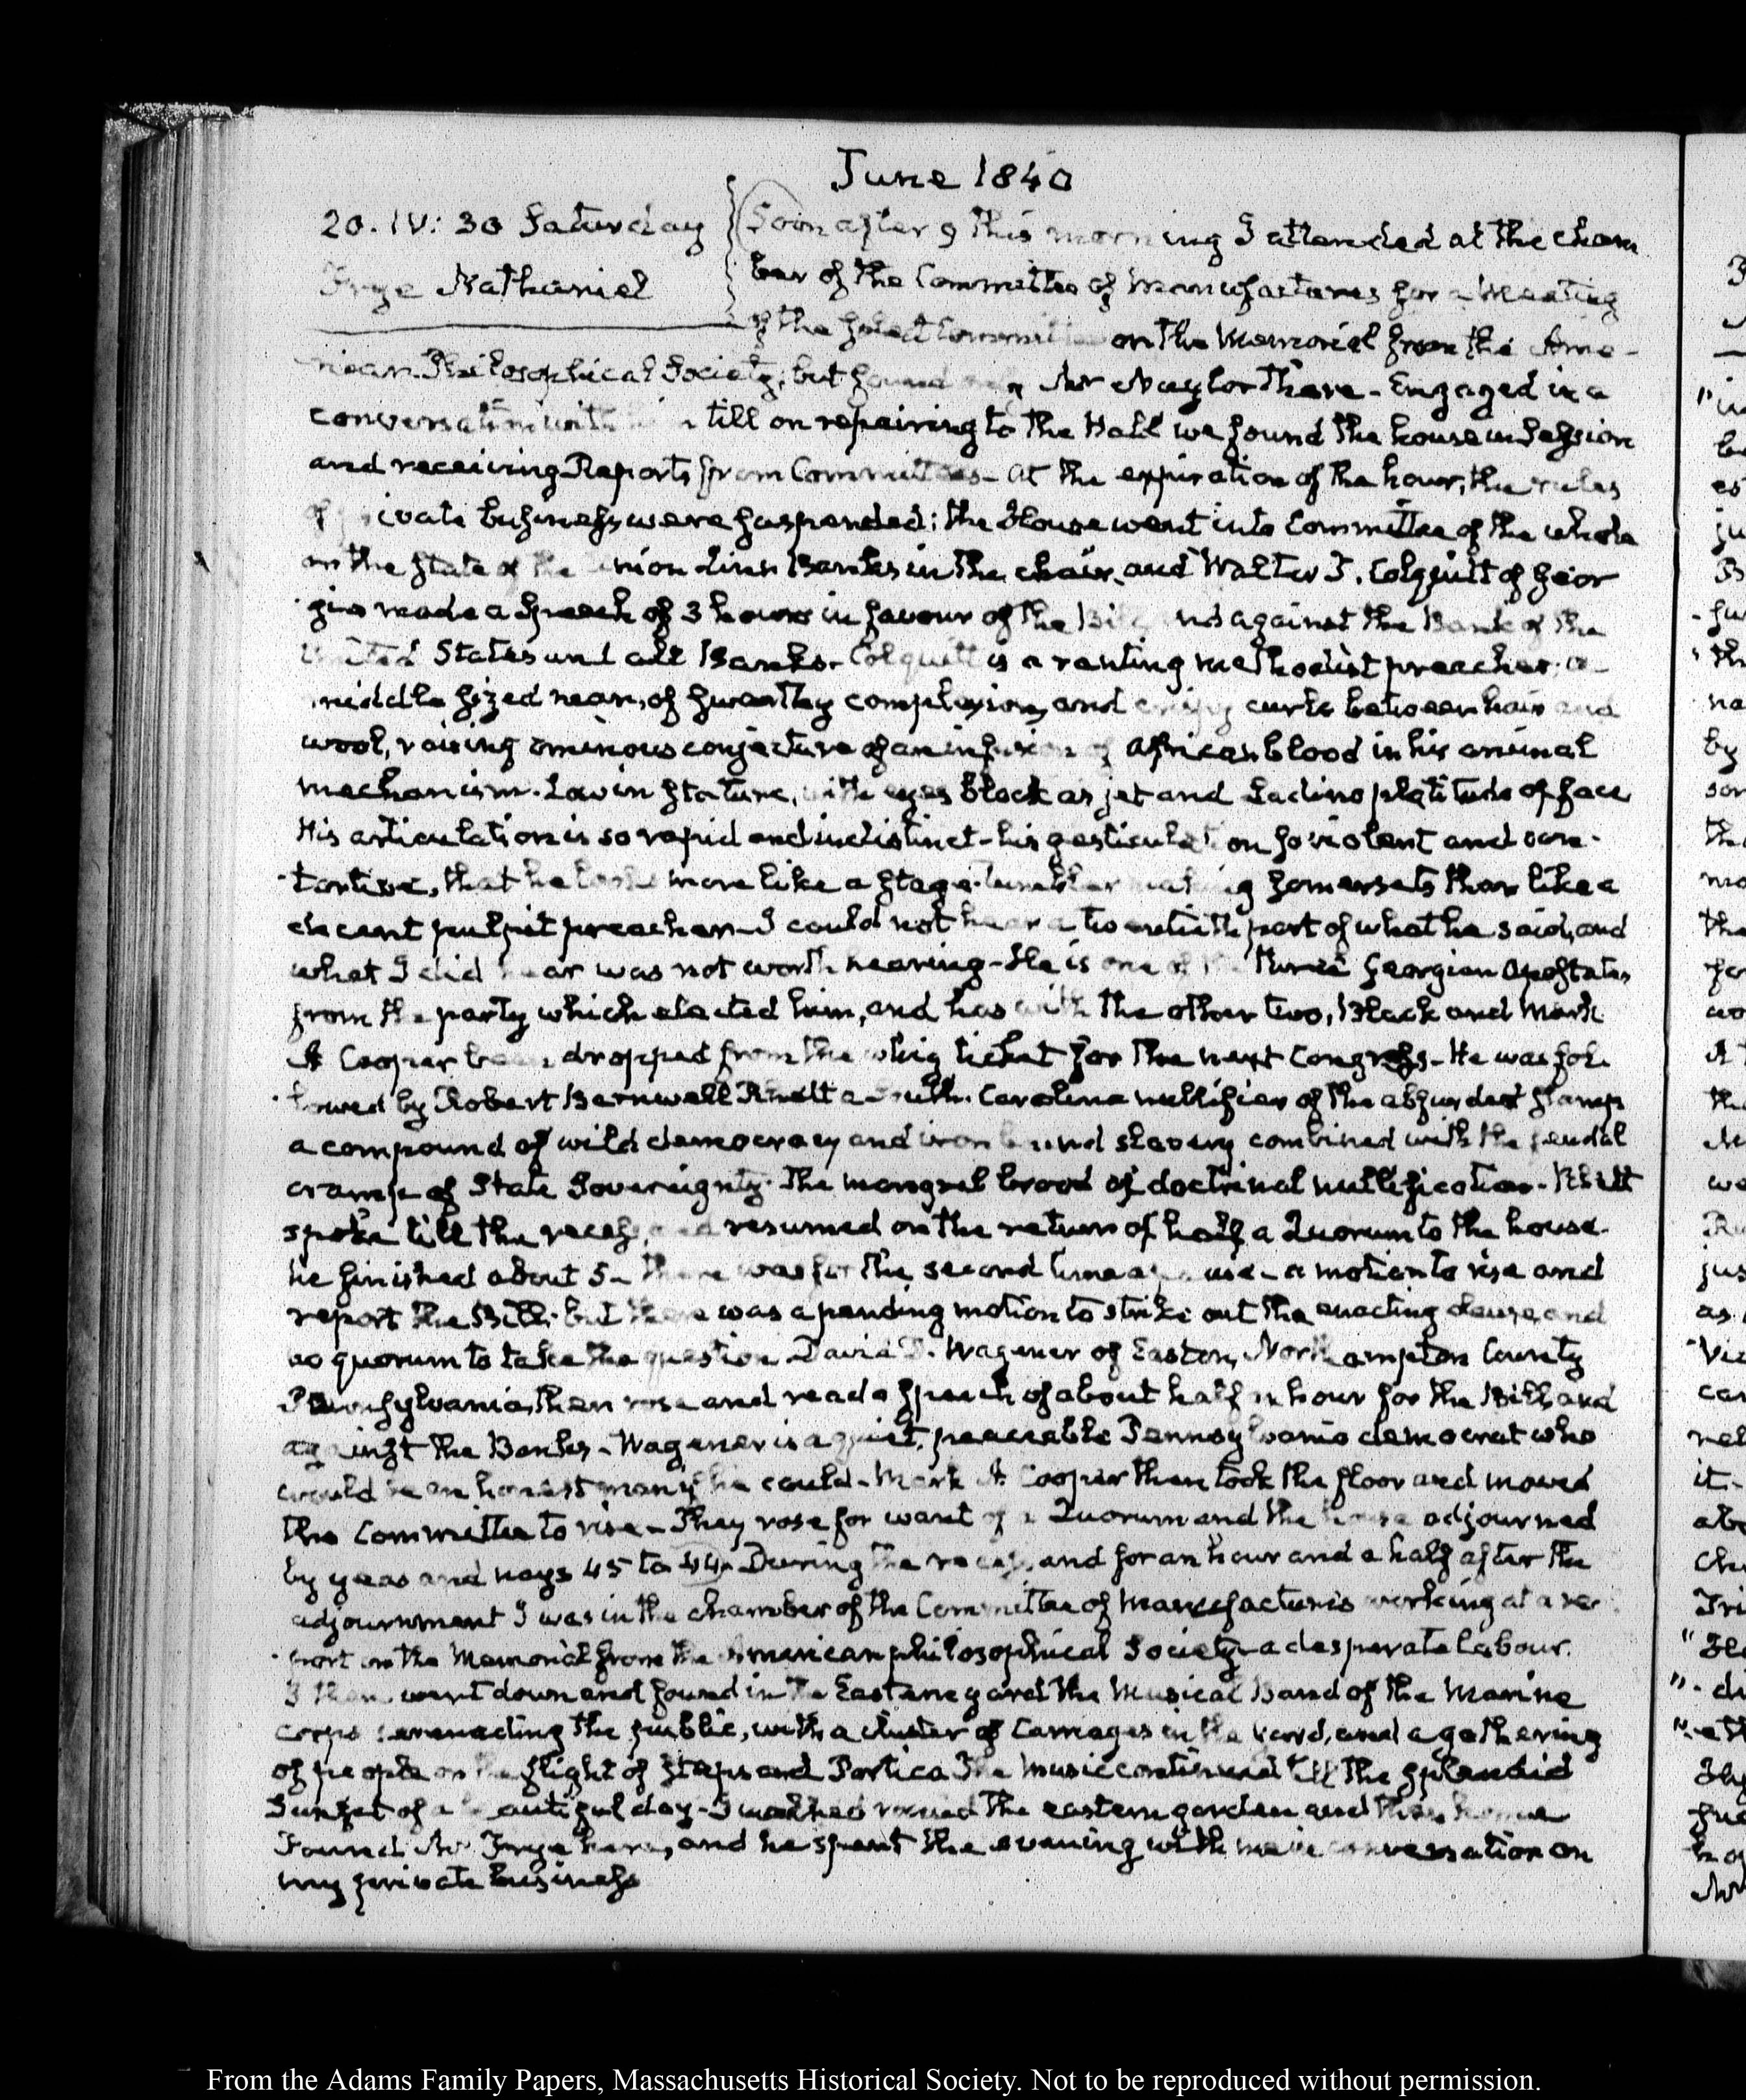 June 1840
20. IV: 30 Saturday
Frye Nathaniel
Soon after 9 this morning I attended at the cham
ber of the Committee of Manufactures for a Meeting
of the Select Committee on the Memorial from the Ame-
rican Philosophical Society; but found only Mr Naylor there - Engaged in a
conversation with him till on repairing to the Hall we found the house in Session
and receiving Reports from Committees - At the expiration of the hour, the rules
of private business were suspended; the House went into Committee of the whole
on the State of the Union Linn Banks in the chair, and Walter T. Colquitt of Geor
gia made a Speech of 3 hours in favour of the Bill and against the Bank of the
United States and all Banks. Colquitt is a ranting methodist preacher, a
middle sized man, of swarthy complexion, and crispy curls between hair and
wool, raising ominous conjecture of an infusion of African blood in his animal
mechanism. Low in stature, with eyes black as jet and Ladino platitude of face
His articulation is so rapid and indistinct - his gesticulation so violent and con-
tortive, that he looks more like a stage-tumbler making somersets than like a
decent pulpit preacher - I could not hear a twentieth part of what he said, and
what I did hear was not worth hearing - He is one of the three Georgian apostates
from the party which elected him, and has with the other two, Black and Mark
A Cooper been dropped from the whig ticket for the next Congress - He was fol-
lowed by Robert Barnwell Rhett a South Carolina nullifier of the absurdest stamp
a compound of wild democracy and iron bound slavery combined with the feudal
cramp of State Sovereignty. The mongrel brood of doctrinal nullification - Rhett
spoke till the recess, and resumed on the return of half a Quorum to the house.
he finished about 5 - There was for the second time a pause - a motion to rise and
report the Bill: but there was a pending motion to strike out the enacting clause, and
no quorum to take the question David D. Wagener of Easton, Northampton County
Pennsylvania, then rose and read a speech of about half an hour for the Bill and
against the Banks - Wagener is a quiet, peaceable Pennsylvania democrat who
would be an honest man if he could - Mark A Cooper then took the floor and moved
the Committee to rise - They rose for want of a Quorum and the house adjourned
by yeas and nays 45 to 44. During the recess, and for an hour and a half after the
adjournment I was in the chamber of the Committee of Manufactures working at a re-
port on the Memorial from the American philosophical Society - a desperate labour.
I then went down and found in the Eastern yard the Musical Band of the Marine
Corps serenading the public, with a cluster of Carriages in the yard, and a gathering
of people on the flight of steps and Portico The music continued till the splendid
Sunset of a beautiful day - I walked round the eastern garden and then home
Found Mr Frye here, and he spent the evening with me in conversation on
my private business